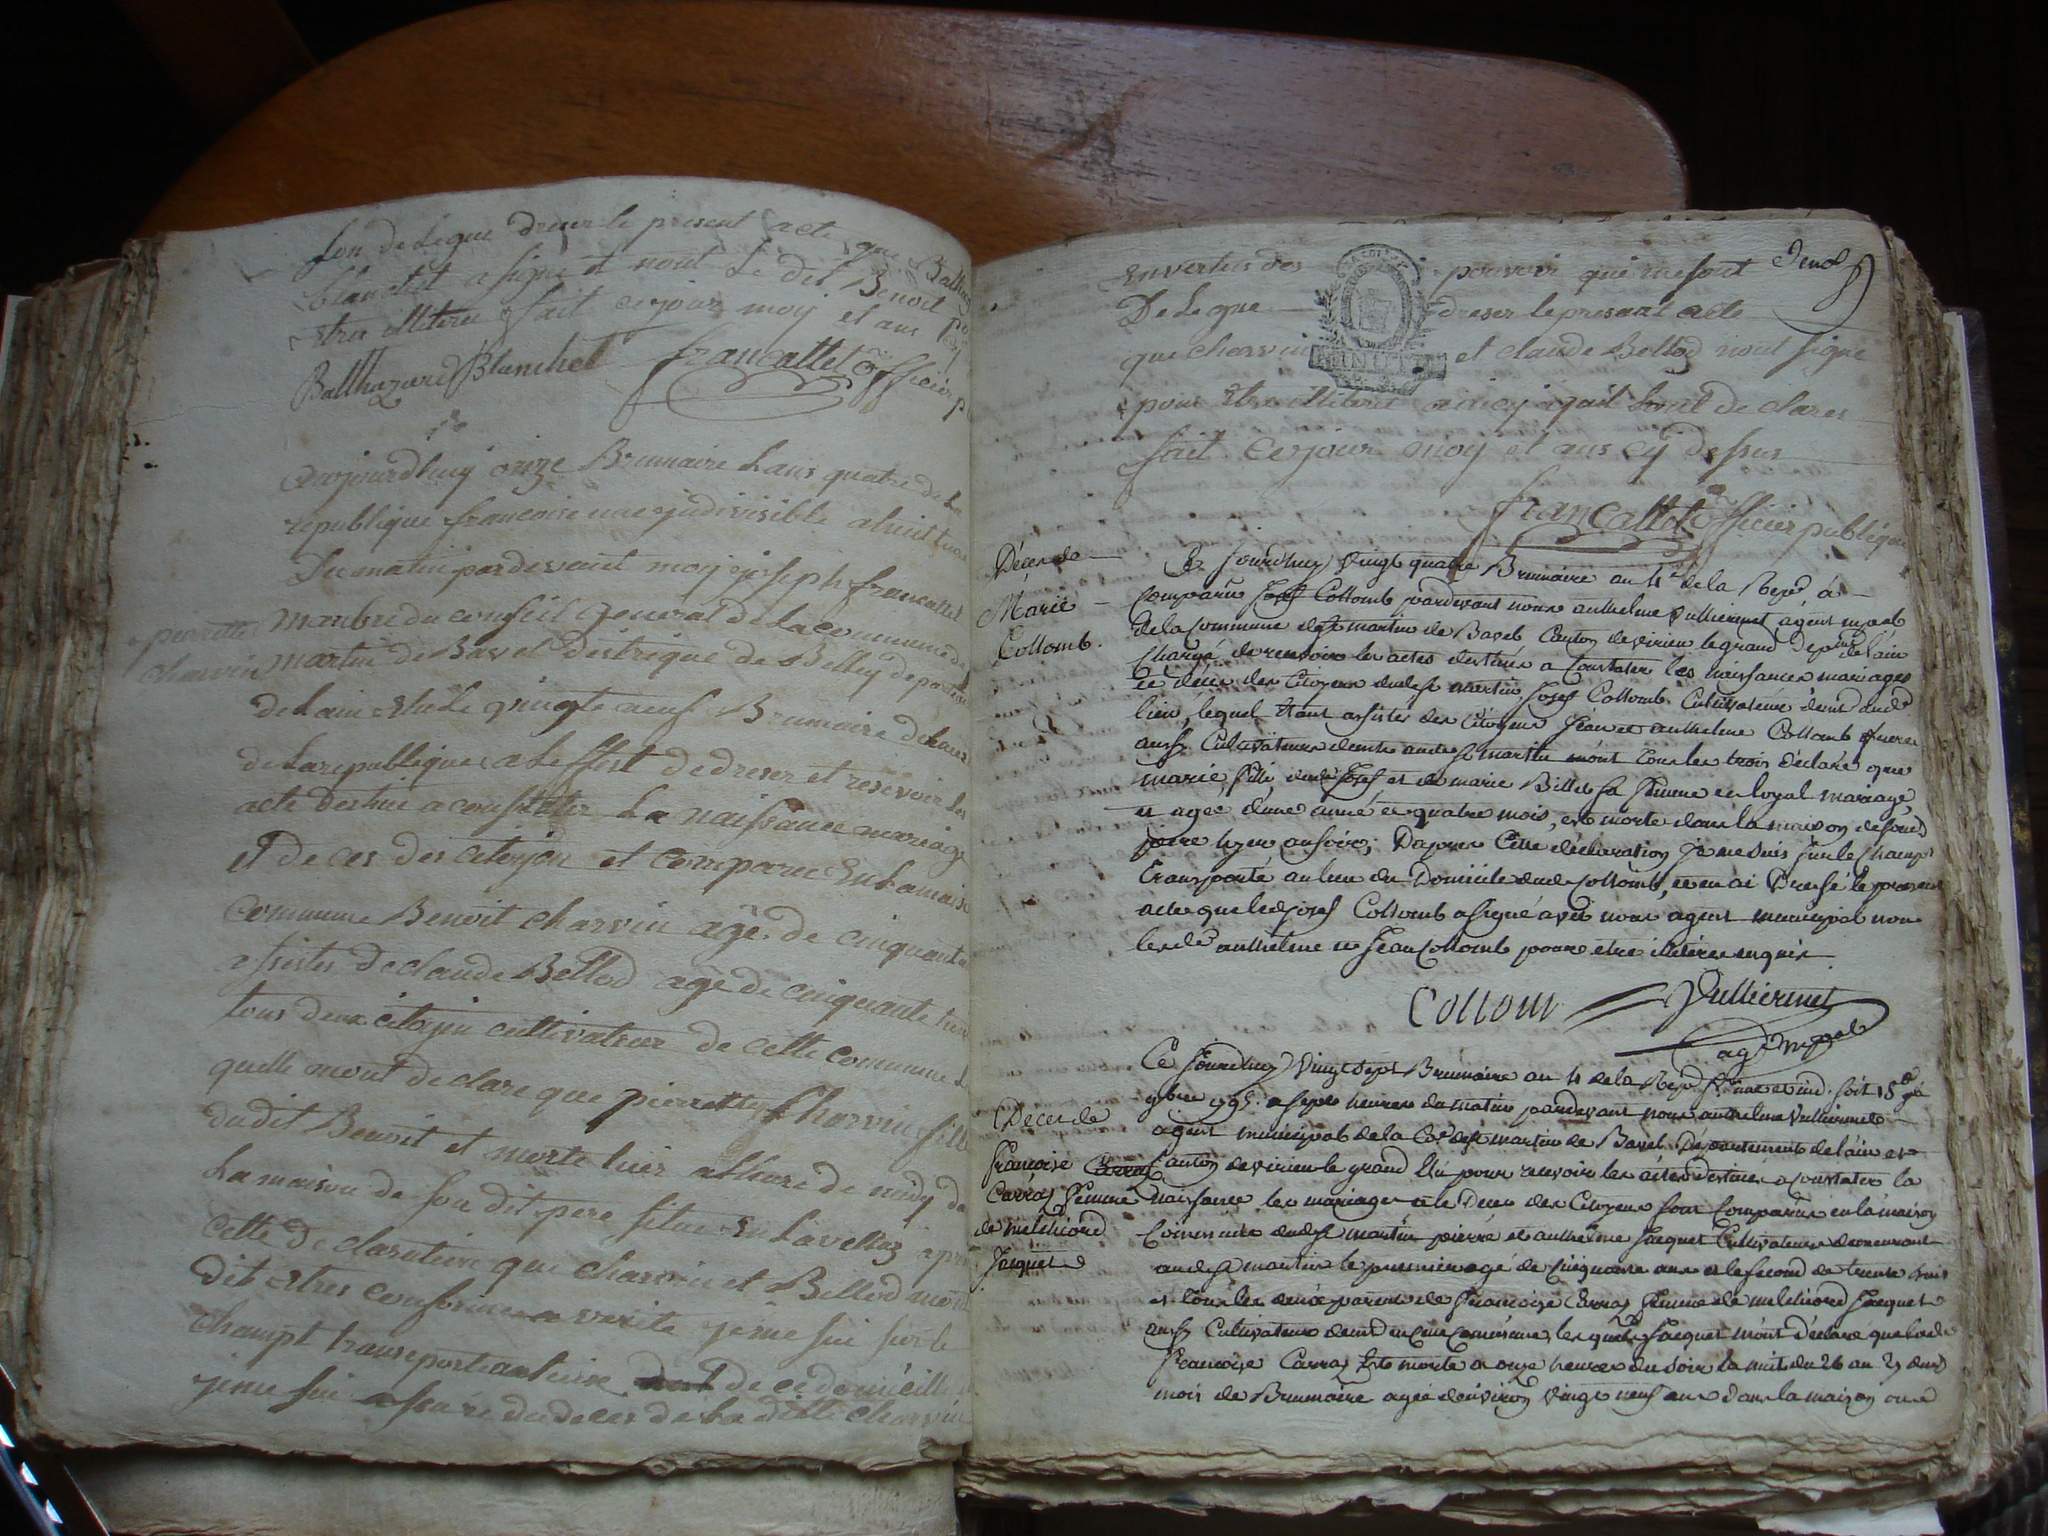 son de Legue dreser le present acte que Baltaz
blanchet a signé et nont le dit Benoit po
etre illitere fait ce jour moy et ans
Balthazard Blanchet francallet officier p
aujourdhuy onze Brumaire Lans quatre de La
republique francoise une indivisible a huit heur
Du matin pardevant moy joseph francallet
manbre du conseil general de La commune de
perrette
charvin
martin de Bavel destrique de Belley departem
de Lain elu Le vingte neuf Brumaire
de La republique a Leffest de dreser et resevoir les
acte destine a constater La naissance mariage
et de ces des citoyen et comparu En La maison
commune Benoit charvin age de cinquante
assistes de claude Bellod age de cinquante
tous deux citoyin cultivateur de cette commune
quelle mont de clare que pierrette Charvin fille
du dit Benoit et morte hier a lheure de midy da
La maison de son dit pere situe En Lavellaz apre
cette De claration que charvin et Bellod mont
dit etres conforme a verite je me sui sur le
champt transporte au lieu de ce domicille
je me sui asseuré du deces de La ditte charvin
En vertus des pouvoir qui me sont
De Legue dreser le presant acte
que charvin et claude Bellod nont signe
pour etre illiteré a moy de clarer
fait Ce jour moy et ans cy dessus
francallet officier publique
Décès de
Marie
Collomb.
Ce Jourdhuy vingt quatre Brumaire an 4e de la Repe a
comparu Josef Collomb pardevant nous anthelme Vulliermet, agent mpal
de la Commune de St martin de Bavel Canton de virieu le grand Depmt de lain
Chargé de recevoir les actes destinés a Constater les naissances mariages
et décès des Citoyens dud. St martin Josef Collomb Cultivateur demt aud
lieu, lequel étant assisté des Citoyens Jean et anthelme Collomb freres
aussy Cultivateurs demts aud. St martin m'ont tous les trois déclaré que
marie, fille dud Josef et de marie Billet sa femme en loyal mariage
et agée d'une année et quatre mois, est morte dans la maison de sond
pere hyer au soir; D'apres Cette déclaration je me suis sur le Champt
transporté au lieu du Domicile dud Collomb, et en ai Dressé le present
acte que led Josef Collomb a signé avec nous agent municipal non
lesd anthelme et Jean Collomb pour etre illitérés enquis
Collom Vulliermet
agt mpal
Ce Jourdhuy vingt Sept Brumaire an 4 de la Repe fr une et ind. soit 18e
9bre 1795 a sept heures du matin pardevant nous anthelme Vulliermet
Deces de
françoise
Carraz femme
de melchiord
Jacquet
agent municipal de la Cne de St martin de Bavel Département de lain et
Canton de virieu le grand Elu pour recevoir les actes destinés a constater la
naissance les mariages et le Deces des Citoyens sont Comparus en la maison
Commune dud. St martin pierre et anthelme Jacquet Cultivateurs demeurant
aud. St martin le premier agé de Cinquante ans et le second de trente huit
et tous les deux parents de Françoise Carraz femme de melchiord Jacquet
aussy Cultivateur demt en cette Commune, lesquels Jacquet m'ont déclaré que lade
Françoise Carraz Este morte a onze heures du soir la nuit du 26 au 27 dud
mois de Brumaire agée d'environ vingt neuf ans dans la maison ou